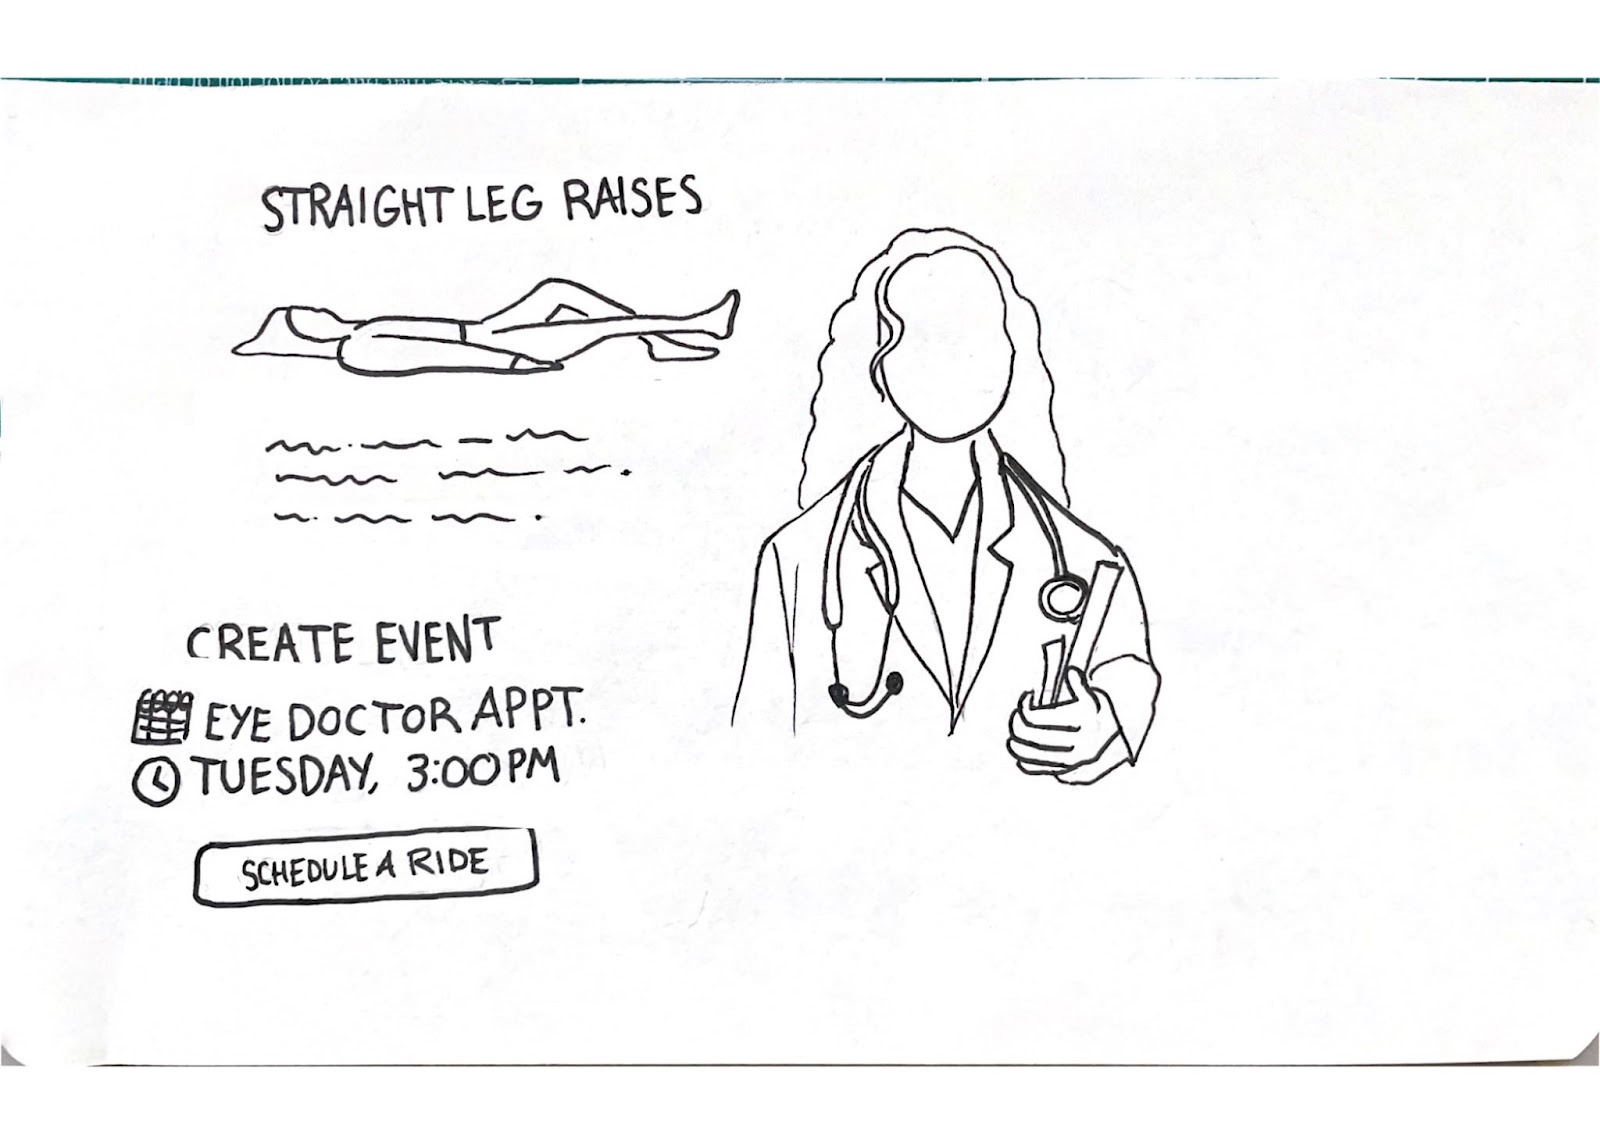 STRAIGHT LEG RAISES
CREATE EVENT
EYE DOCTOR APPT.
TUESDAY, 3:00PM
SCHEDULE A RIDE